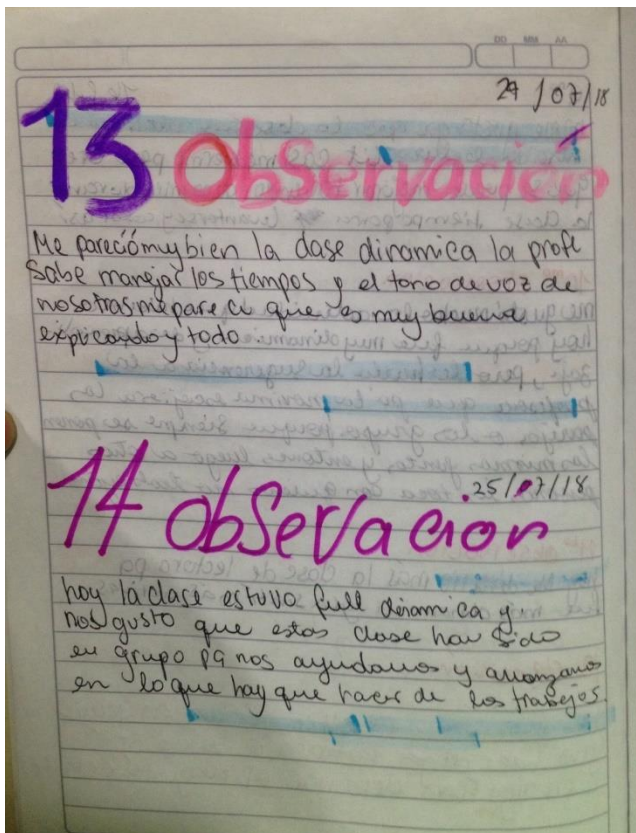 DD MM AA
24/07/18
13 Observación
Me pareció muy bien la clase dinamica la profe
sabe manejar los tiempos y el tono de voz de
nosotras me pareci que es muy buena
explicando y todo.
14 observacion
.25/07/18
hoy la clase estuvo full dinamica y
nos gusto que estas clase han sido
en grupo pa nos ayudamos y avanzamos
en lo que hay que hacer de los trabajos